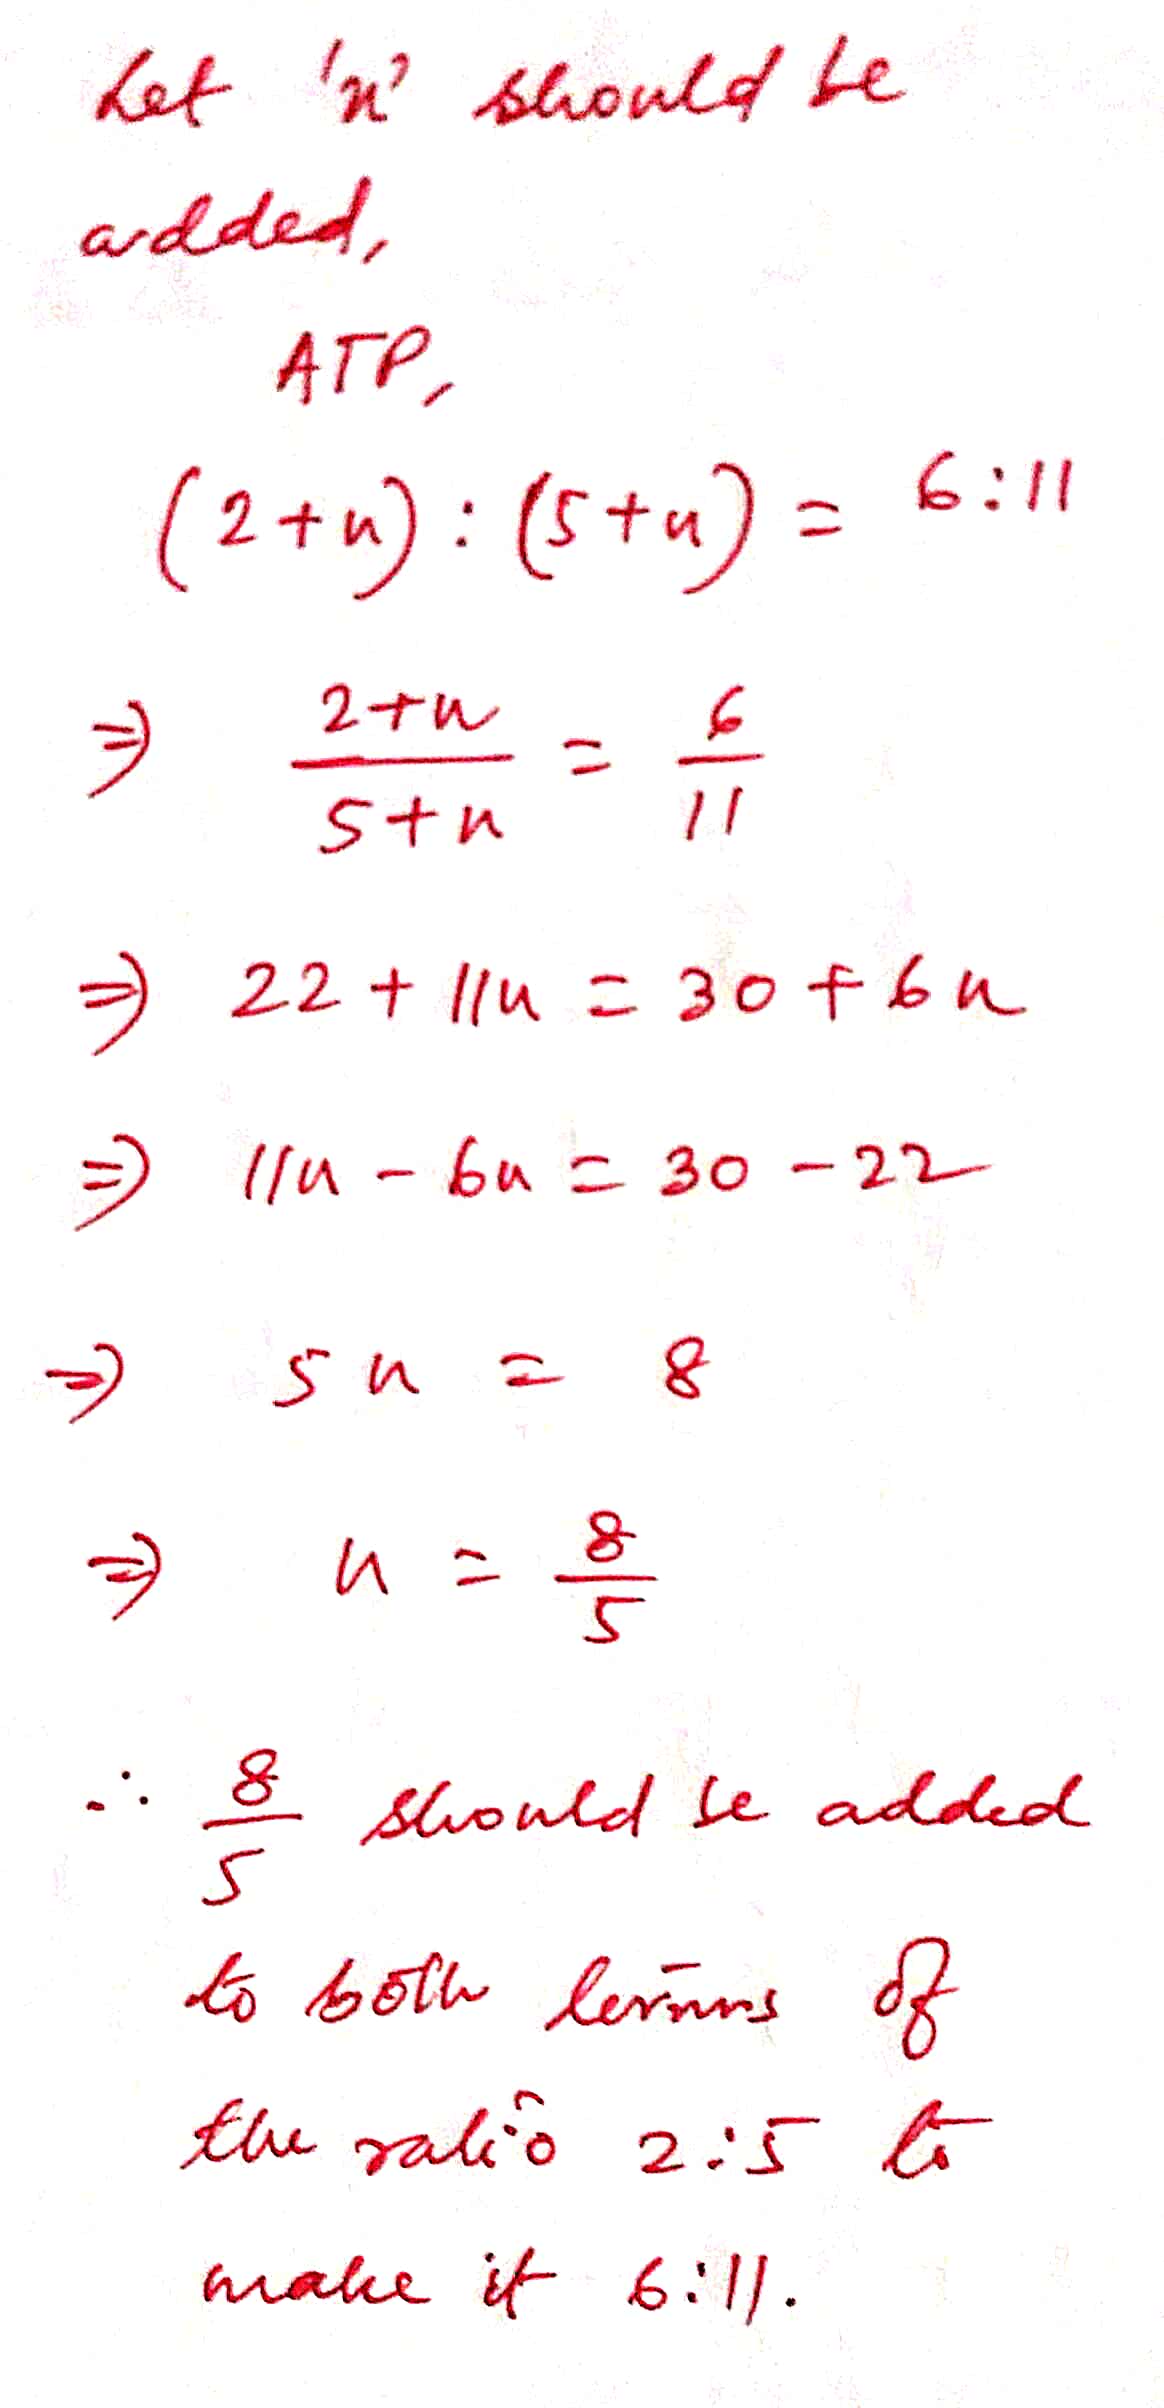 Let 'n' should be
added,
ATP,
(2+n) : (5+n) = 6:11
⇒ 2+n/5+n = 6/11
⇒ 22 + 11n = 30 + 6n
⇒ 11n - 6n = 30 - 22
⇒ 5n = 8
⇒ n = 8/5
∴ 8/5 should be added
to both terms of
the ratio 2:5 to
make it 6:11.